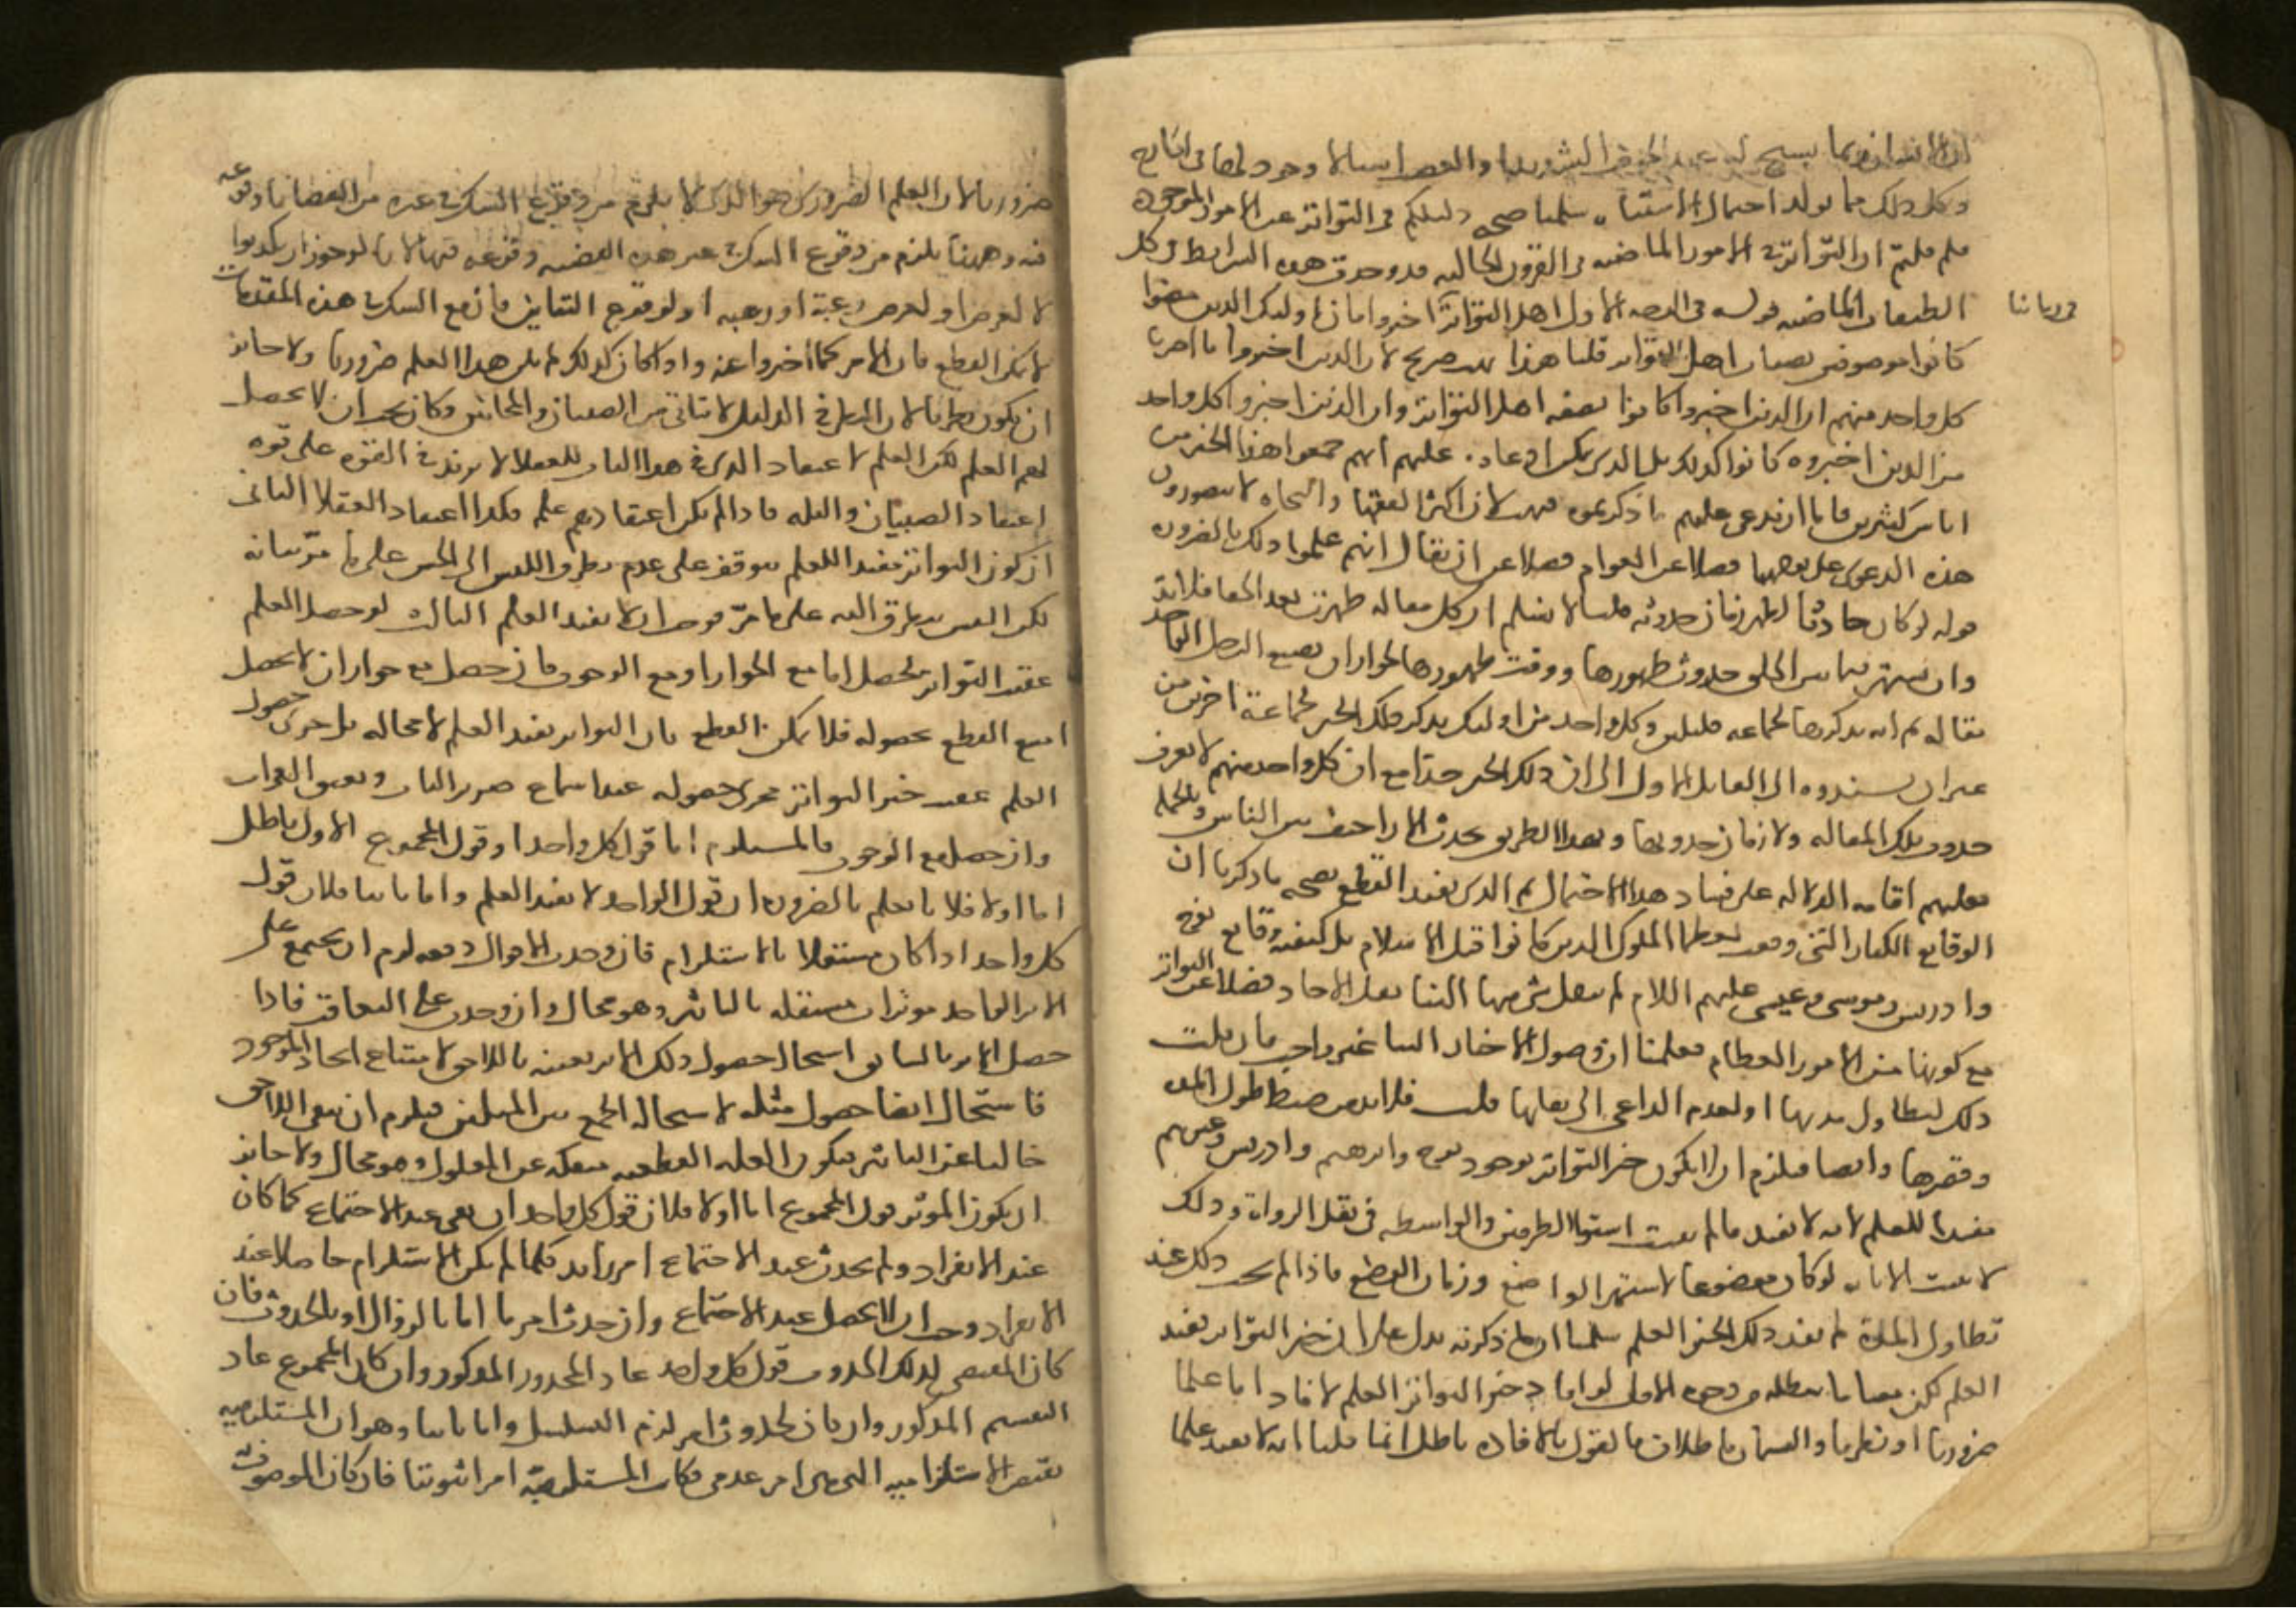 ان الانسان ربما يسبح له عند الخوف الشديد والغضب اشيا لا وجود لها في الخارج
وكل ذلك مما يولد احتمال الاشتباه سلمنا صحه دليلكم في التواتر عن الامور الموجوده
في زماننا
فلم قلتم ان التواتر في الامور الماضيه في القرون الخاليه قد وجدت هذه الشرايط في كل
الطبقات الماضيه قوله في الوجه الاول اهل التواتر اخبروا بان اوليك الذين مضوا
كانوا موصوفين بصفات اهل التواتر قلنا هذا بهت صريح لان الذين اخبروا ما اخبرنا
كل واحد منهم ان الذين اخبروا كانوا بصفه اهل التواتر وان الذين اخبروا كل واحد
من الذين اخبروه كانوا كذلك بل الذي يمكن ادعاوه عليهم انهم سمعوا هذا الخبر من
اناس كثيرين فاما ان ندعي عليهم ما ذكرتموه فهو لان اكثر الفقها والنحاه لا يتصورون
هذه الدعوى على وجهها فضلا عن العوام فضلا عن ان يقال انهم علموا ذلك بالضروره
قوله لو كان حادثا لظهر زمان حدوثه قلنا لا نسلم ان كل مقاله ظهرت بعد الخفا فلا بد
وان يشتهر فيما بين الخلق حدوث ظهورها ووقت ظهورها لجواز ان يضع الرجل الواحد
مقاله ثم انه يذكرها لجماعه قليلين وكل واحد من اوليك يذكر تلك الخبر لجماعة اخرين من
غير ان يسندوه الى القايل الاول الى ان ذلك الخبر جدا مع ان كل واحد منهم لا يعرف
حدوث تلك المقاله ولا زمان حدوثها وبهذا الطريق تحدث الاراجيف بين الناس وبالجمله
فعليهم اقامه الدلاله على فساد هذا الاحتمال ثم الذي يفيد القطع بصحه ما ذكرنا ان
الوقايع الكبار التي وقعت لعظما الملوك الذين كانوا قبل الاسلام بل كيفيه وقايع نوح
وادريس وموسى وعيسى عليهم السلام لم ينقل شي منها الينا نقل الاحاد فضلا عن التواتر
مع كونها من الامور العظام فعلمنا ان وصول الاخبار الينا غير واجب فان قلت
ذلك لتطاول مدتها او لعدم الداعي الى نقلها قلت فلا بد من ضبط طول المده
وقصرها وايضا فيلزم ان لا يكون خبر التواتر بوجود نوح وابرهيم وادريس وغيرهم
مفيدا للعلم لانه لا يفيد ما لم يثبت استوا الطرفين والواسطه في نقل الرواه وذلك
لا يثبت الا بانه لو كان موضوعا لاشتهر الواضع وزمان الوضع فاذا لم يجب ذلك عند
تطاول المدة لم يفد ذلك الخبر العلم سلمنا ان ما ذكرته يدل على ان خبر التواتر يفيد
العلم لكن معنا ما يبطله من وجوه الاول لو افاد خبر التواتر العلم لافاد اما علما
ضروريا او نظريا والقسمان باطلان فالقول بالافاده باطل انما قلنا انه لا يفيد علما
ضروريا لان العلم الضروري هو الذي لا يلزم من وقوع الشك في غيره من القضايا وقوعه
فيه وههنا يلزم من وقوع الشك في غير هذه القضيه وقوعه فيها لانا لو جوزنا ان يكذبوا
لا لغرض او لغرض رغبة او رهبه او لوقوع التباين فان مع الشك في هذه المقدمات
لا يمكن القطع بان الامر كما اخبروا عنه واذا كان كذلك لم يكن هذا العلم ضروريا ولا جايز
ان يكون نظريا لان النظر في الدليل لا يتاتى من الصبيان والمجانين وكان يجب ان لا يحصل
لهم العلم لكن العلم لا اعتقاد الذي في هذا الباب للعقلا لا يزيد في القوه على قوه
اعتقاد الصبيان والبله فاذا لم يكن اعتقادهم علم فكذا اعتقاد العقلا الثاني
ان كون التواتر مفيدا للعلم يتوقف على عدم تطرق اللبس الى الحس على ما مر بيانه
لكن اللبس يتطرق اليه على ما مر فوجب ان لا يفيد العلم الثالث لو حصل العلم
عقيب التواتر لحصل اما مع الجواز او مع الوجوب فان حصل مع جواز ان لا يحصل
امتنع القطع بحصوله فلا يمكن القطع بان التواتر يفيد العلم لا محاله بل جرى حصول
العلم عقيب خبر التواتر مجرى حصوله عند سماع صرير الباب ونعيق الغراب
وان حصل مع الوجوب فالمستلزم اما قول كل واحد او قول المجموع الاول باطل
اما اولا فلانا نعلم بالضروره ان قول الواحد لا يفيد العلم واما ثانيا فلان قول
كل واحد اذا كان مستقلا بالاستلزام فان وجدت الاقوال دفعه لزم ان يجتمع على
الاثر الواحد موثرات مستقله بالتاثير وهو محال وان وجدت على التعاقب فاذا
حصل الاثر بالسابق استحال حصول ذلك الاثر بعينه باللاحق لامتناع ايجاد الموجود
فاستحال ايضا حصول مثله لاستحاله الجمع بين المثلين فيلزم ان يبقى اللاحق
خاليا عن التاثير فيكون العله القطعيه منفكه عن المعلول وهو محال ولا جايز
ان يكون الموثر قول المجموع اما اولا فلان قول كل واحد ان بقي عند الاجتماع كما كان
عند الانفراد ولم يحدث عند الاجتماع امر زايد فكما لم يكن الاستلزام حاصلا عند
الانفراد وجب ان لا يحصل عند الاجتماع وان حدث امر ما اما بالزوال او بالحدوث فان
كان المقتضي لذلك الحدوث قول كل واحد عاد المحذور المذكور وان كان المجموع عاد
التقسيم المذكور وان كان لحدوث امر لزم التسلسل واما ثانيا وهو ان المستلزميه
نقيض الا مستلزاميه التي هي امر عدمي فكانت المستلزميه امرا ثبوتيا فان كان الموصوف